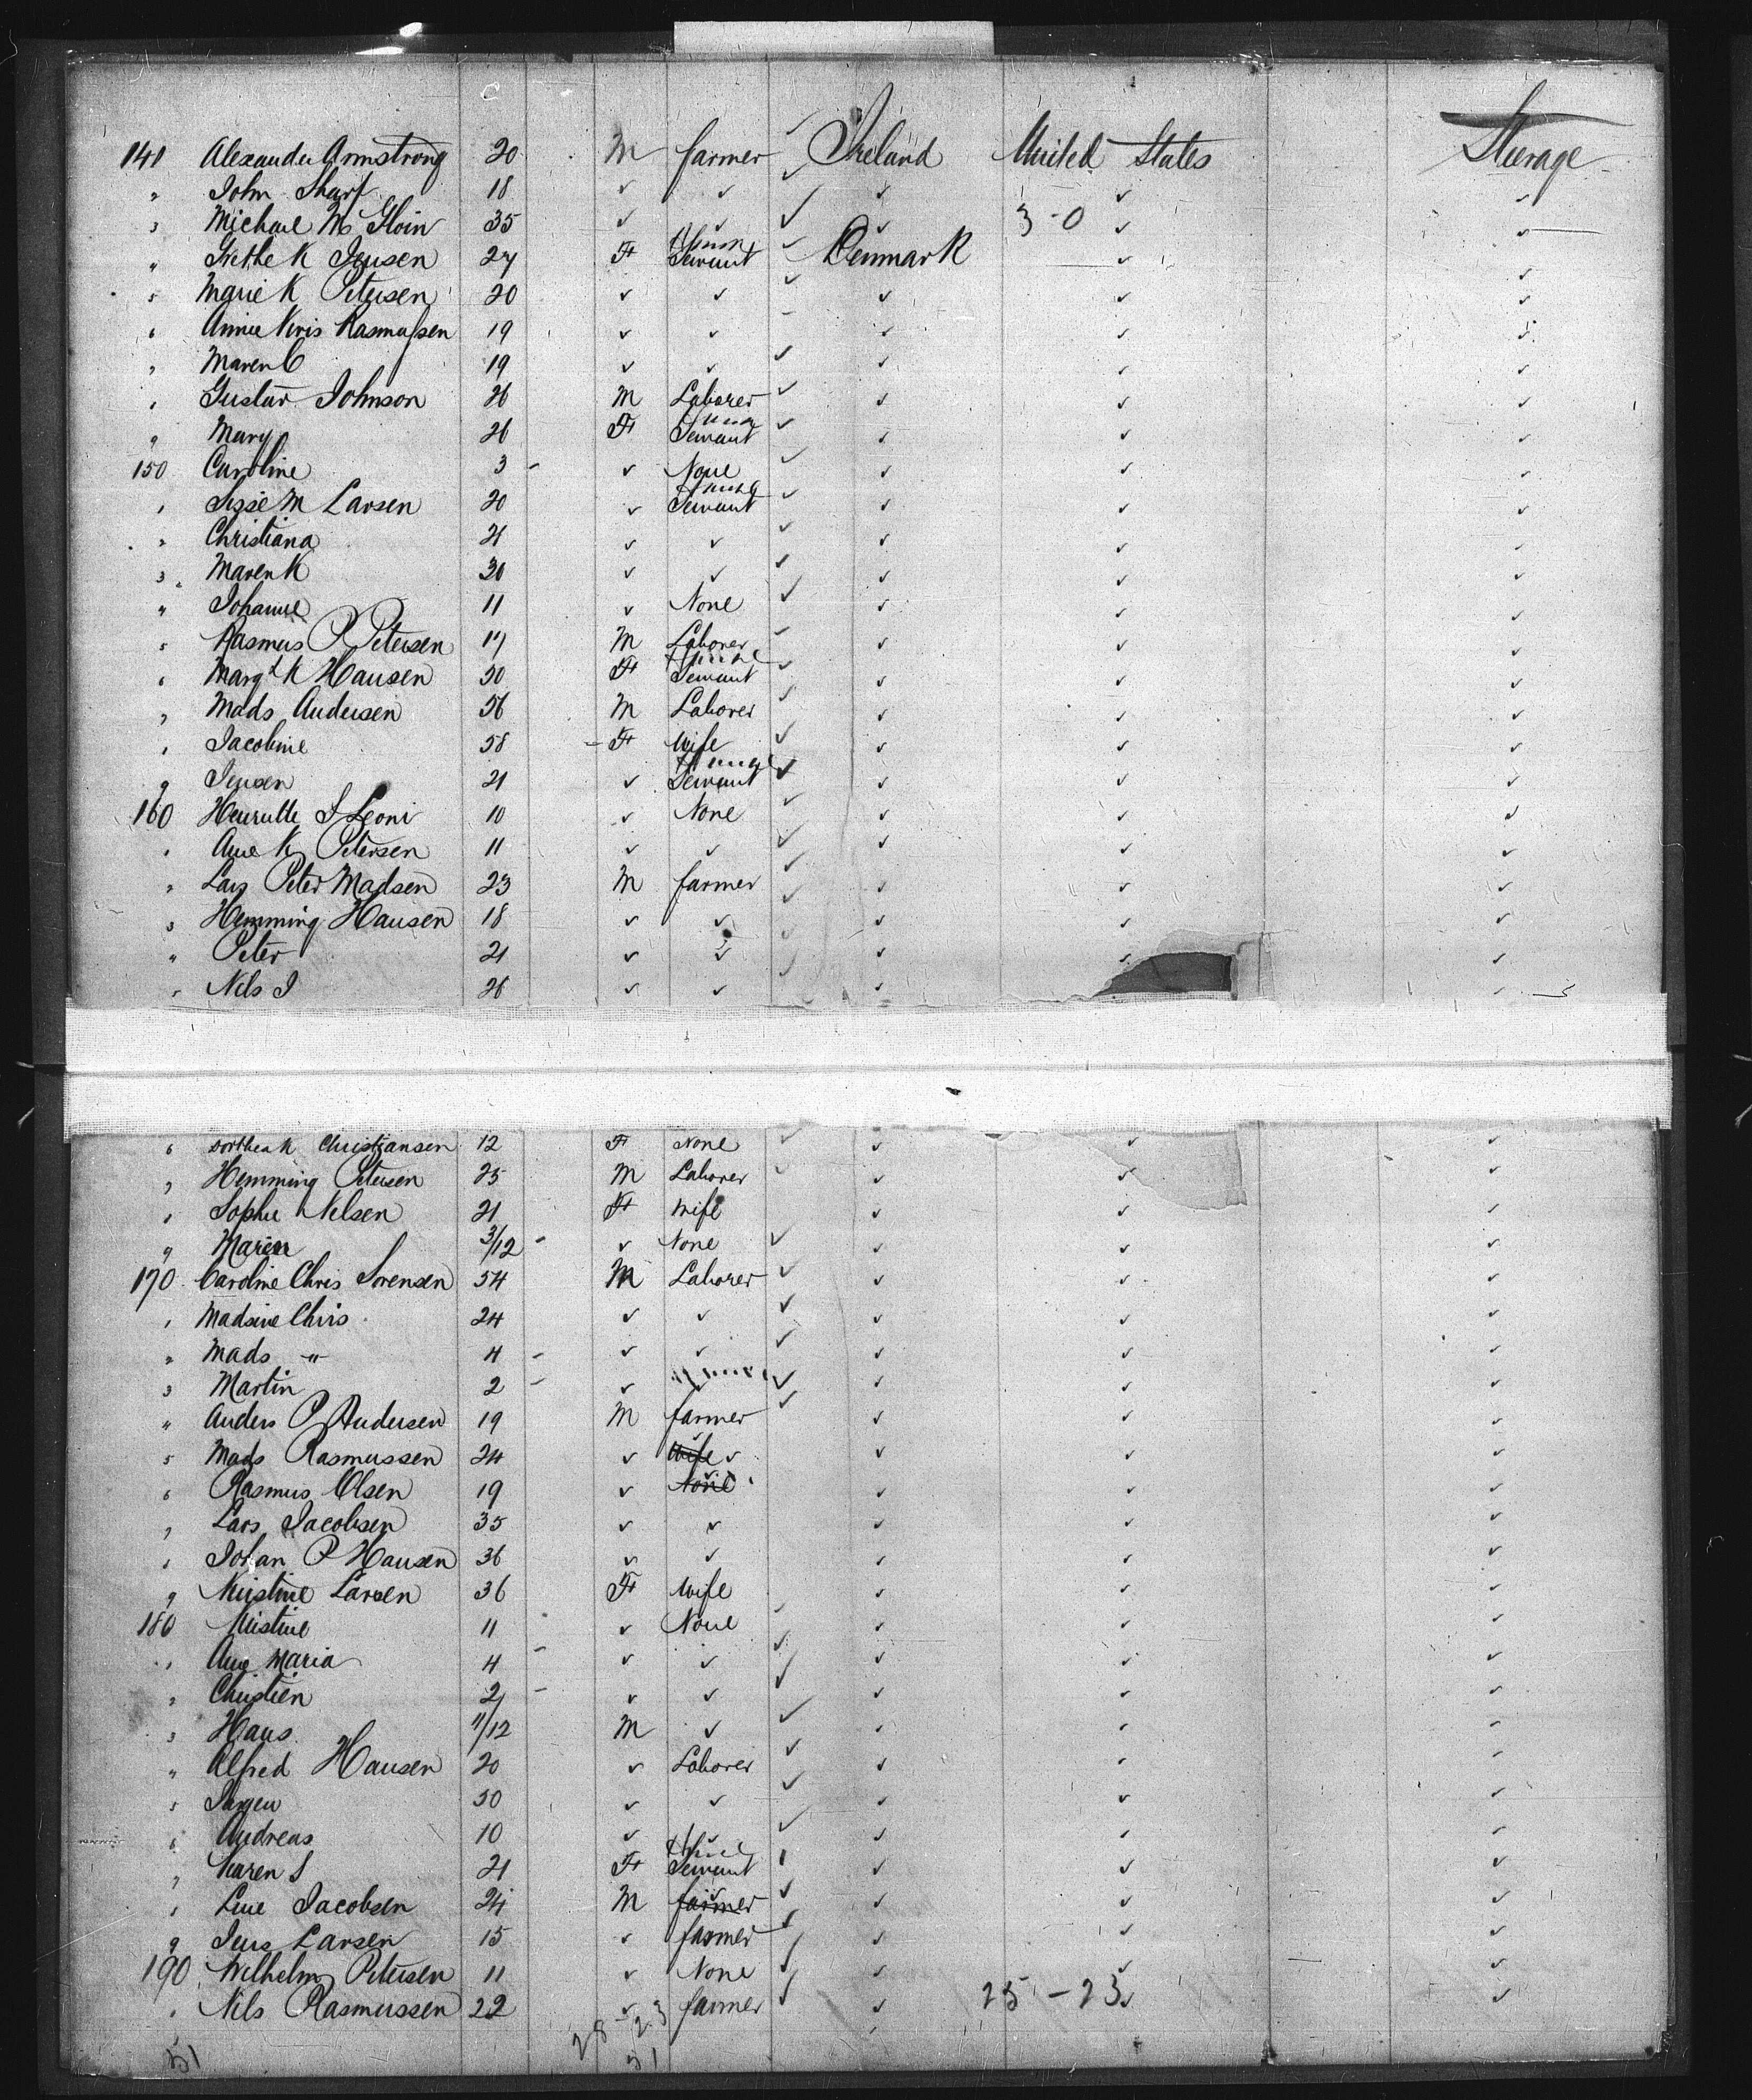 141 Alexander Armstrong 20 M farmer Ireland United States Steerage
" John Sharp 18 ✓ ✓ ✓ ✓ ✓
3 Michael Mc Gloin 35 ✓ ✓ ✓ 3-0 ✓ ✓
" Grethe K Jensen 27 F Servant Denmark ✓ ✓
5 Marie K Petersen 20 ✓ ✓ ✓ ✓ ✓
6 Annie Kris Rasmussen 19 ✓ ✓ ✓ ✓ ✓
7 Maren C 19 ✓ ✓ ✓ ✓ ✓
8 Gustav Johnson 26 M Laborer ✓ ✓ ✓
9 Mary 26 F Servant ✓ ✓ ✓
150 Caroline 3 - ✓ None ✓ ✓ ✓
1 Sissie M Larsen 20 ✓ Servant ✓ ✓ ✓
2 Christiana 21 ✓ ✓ ✓ ✓ ✓
3 Maren K 30 ✓ ✓ ✓ ✓ ✓
" Johanne 11 ✓ None ✓ ✓ ✓
5 Rasmus P Petersen 17 M Laborer ✓ ✓ ✓
6 Margt K Hansen 50 F Servant ✓ ✓ ✓
7 Mads Andersen 56 M Laborer ✓ ✓ ✓
8 Jacobine 58 - F Wife ✓ ✓ ✓
9 Jensen 21 ✓ Servant ✓ ✓ ✓
160 Henriette S Leoni 10 ✓ None ✓ ✓ ✓
1 Ane K Petersen 11 ✓ ✓ ✓ ✓ ✓
2 Lars Peter Madsen 23 M farmer ✓ ✓ ✓
3 Hemming Hansen 18 ✓ ✓ ✓ ✓ ✓
" Peter 21 ✓ ✓ ✓ ✓ ✓
5 Nils J 26 ✓ ✓ ✓ ✓
6 Dorthea K Christiansen 12 F None ✓ ✓ ✓
7 Hemming Petersen 25 M Laborer ✓ ✓ ✓
8 Sophie Nelsen 21 F Wife ✓ ✓ ✓
9 Maria 3/12 - ✓ None ✓ ✓ ✓
170 Caroline Chris Sorensen 54 M Laborer ✓ ✓ ✓
1 Madsine Chris 24 ✓ ✓ ✓ ✓ ✓
2 Mads " 4 - ✓ ✓ ✓ ✓ ✓
3 Martin 2 - ✓ ✓ ✓ ✓
" Anders P Andersen 19 M farmer ✓ ✓ ✓
5 Mads Rasmussen 24 ✓ Wife ✓ ✓ ✓ ✓
6 Rasmus Olsen 19 ✓ None ✓ ✓ ✓
7 Lars Jacobsen 35 ✓ ✓ ✓ ✓ ✓
8 Johan P Hansen 36 ✓ ✓ ✓ ✓ ✓
9 Kirstine Larsen 36 F Wife ✓ ✓ ✓
180 Kirstine 11 ✓ None ✓ ✓ ✓
1 Ane Maria 4 - ✓ ✓ ✓ ✓ ✓
2 Christien 2 - ✓ ✓ ✓ ✓ ✓
3 Hans 11/12 M ✓ ✓ ✓ ✓
" Alfred Hansen 20 ✓ Laborer ✓ ✓ ✓
5 Jorgen 50 ✓ ✓ ✓ ✓ ✓
6 Andreas 10 ✓ ✓ ✓ ✓ ✓
7 Karen S 21 F Servant ✓ ✓ ✓
8 Lene Jacobsen 24 M farmer ✓ ✓ ✓
9 Jens Larsen 15 ✓ farmer ✓ ✓ ✓
190 Wilhelm Petersen 11 ✓ None ✓ ✓ ✓
1 Nils Rasmussen 22 ✓ farmer ✓ 25-23 ✓ ✓
28-23
51 51